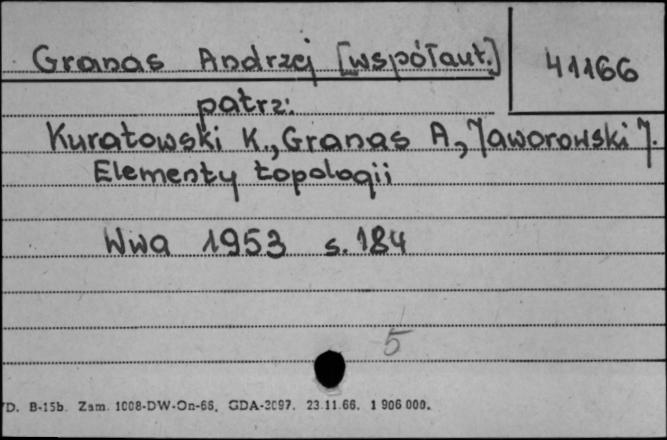 Granas Andrzej [współaut.]
41166
patrz:
Kuratowski K., Granas A, Jaworowski J.
Elementy topologii
Wwa 1953 s. 184
5
D. B-15b. Zam. 1008-DW-On-66. GDA-2097. 23.11.66. 1 906 000.